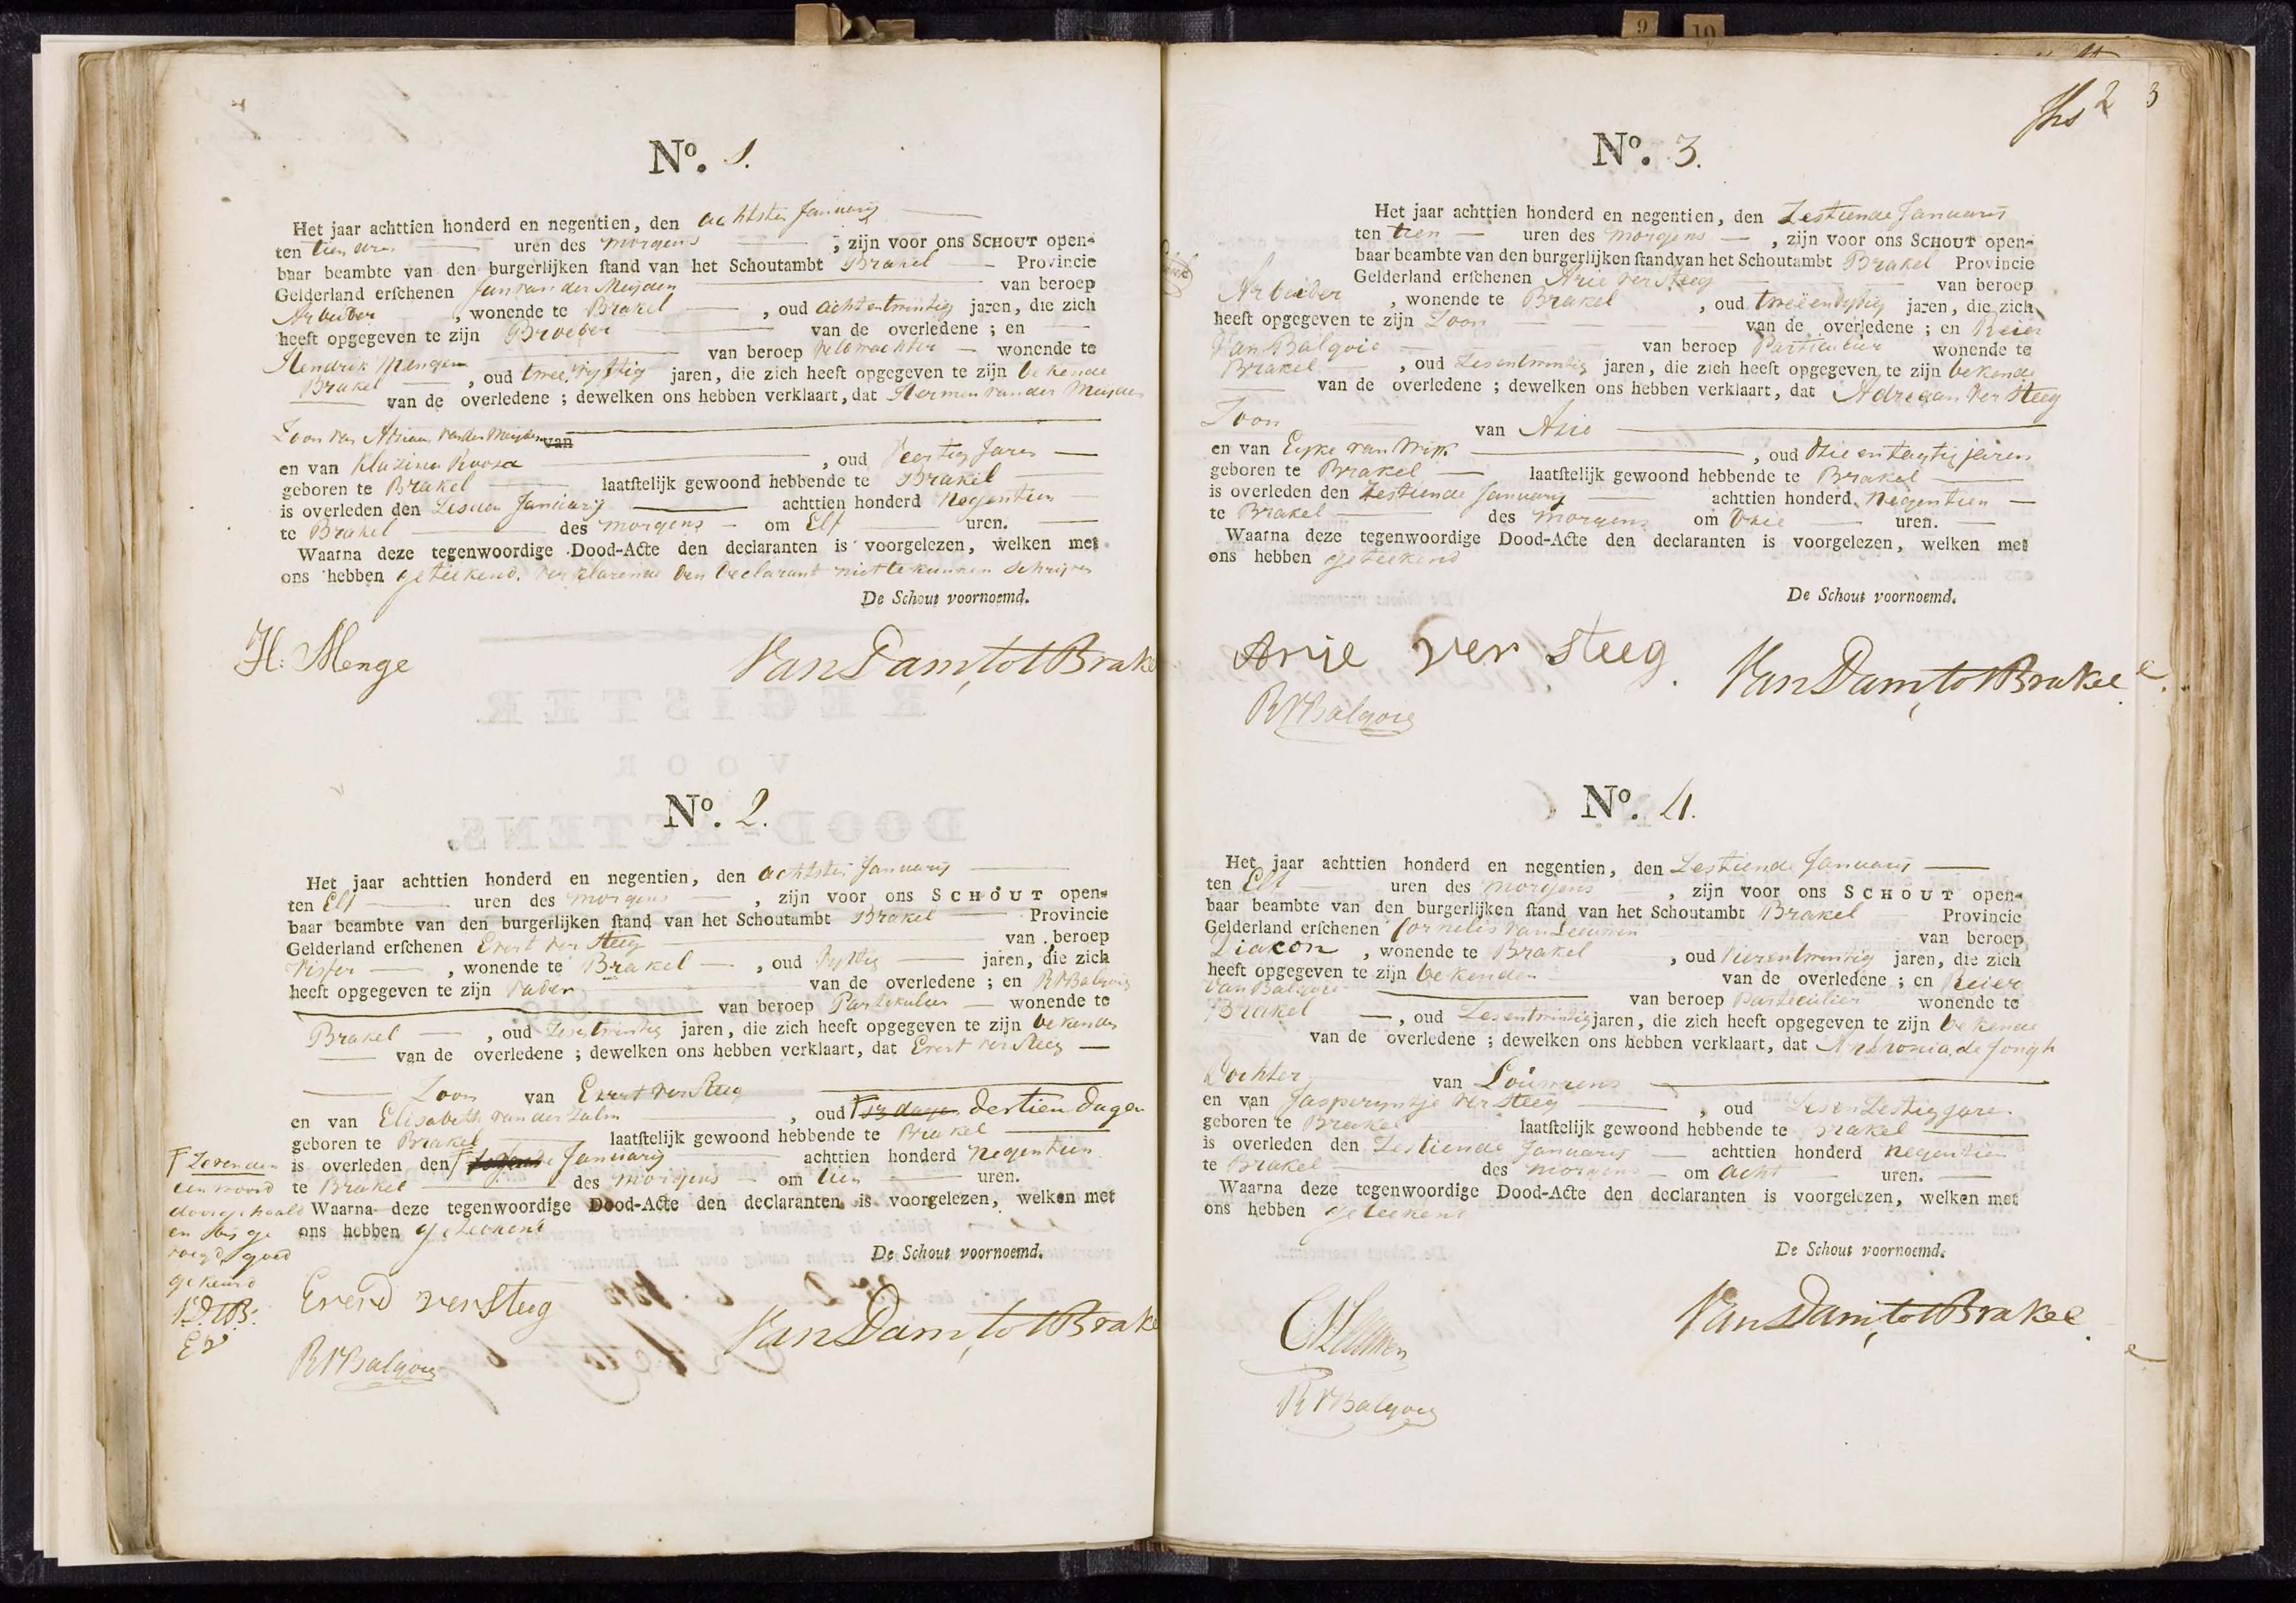 No. 1.
Het jaar achttien honderd en negentien, den achtsten January
ten tien uren uren des morgens , zijn voor ons SCHOUT open-
baar beambte van den burgerlijken stand van het Schoutambt Brakel Provincie
Gelderland erschenen Jan van der Meijden van beroep
Arbeider , wonende te Brakel , oud achtentwintig jaren, die zich
heeft opgegeven te zijn Broeder van de overledene ; en
Hendrik Mengen van beroep veldwachter wonende te
Brakel , oud twee vyftig jaren, die zich heeft opgegeven te zijn bekende
van de overledene ; dewelken ons hebben verklaart, dat Hermen van der Meijden
Zoon van Adriaan van der Meyden van
en van Klazina Roosa , oud Veertig Jaren
geboren te Brakel laatstelijk gewoond hebbende te Brakel
is overleden den Zesden January achttien honderd Negentien
te Brakel des morgens om Elf uren.
Waarna deze tegenwoordige Dood-Acte den declaranten is voorgelezen, welken met
ons hebben geteekend. verklarende den Declarant niet te kunnen schrijven
De Schout voornoemd.
H: Menge Van Dam, tot Brake
No. 2.
Het jaar achttien honderd en negentien, den achtsten January
ten Elf uren des morgens , zijn voor ons SCHOUT open-
baar beambte van den burgerlijken stand van het Schoutambt Brakel Provincie
Gelderland erschenen Evert ver Steeg van beroep
Visser , wonende te Brakel , oud Vyftig jaren, die zich
heeft opgegeven te zijn Vader van de overledene ; en RVBalgoy
van beroep Partikulier wonende te
Brakel , oud Zesentwintig jaren, die zich heeft opgegeven te zijn bekende
van de overledene ; dewelken ons hebben verklaart, dat Evert ver Steeg
Zoon van Evert ver Steeg
en van Elisabeth van der Zalm , oud 13 dagen dertien Dagen
geboren te Brakel laatstelijk gewoond hebbende te Brakel
is overleden den January achttien honderd Negentien
te Brakel des morgens om tien uren.
Waarna deze tegenwoordige Dood-Acte den declaranten is voorgelezen, welken met
ons hebben geteekend
De Schout voornoemd.
Zevenden
een woord
doorgehaald
en bijge
voegd goed
gekeurd
VDTB:
EV
Everd versteeg
RVBalgoy Van Dam, tot Brake
2 3
No. 3.
Het jaar achttien honderd en negentien, den Zestiende January
ten tien uren des morgens , zijn voor ons SCHOUT open-
baar beambte van den burgerlijken stand van het Schoutambt Brakel Provincie
Gelderland erschenen Arie ver Steeg van beroep
Arbeider , wonende te Brakel , oud tweeënvyftig jaren, die zich
heeft opgegeven te zijn Zoon van de overledene ; en Reier
Van Balgoie van beroep Particulier wonende te
Brakel , oud Zesentwintig jaren, die zich heeft opgegeven te zijn bekende
van de overledene ; dewelken ons hebben verklaart, dat Adriaan ver Steeg
Zoon van Arie
en van Eyke van Wijk , oud drie en tagtig jaren
geboren te Brakel laatstelijk gewoond hebbende te Brakel
is overleden den Zestiende January achttien honderd Negentien
te Brakel des morgens om Drie uren.
Waarna deze tegenwoordige Dood-Acte den declaranten is voorgelezen, welken met
ons hebben geteekend
De Schout voornoemd.
Arie ver steeg Van Dam, tot Brakel
RVBalgoy
No. 4.
Het jaar achttien honderd en negentien, den Zestiende January
ten Elf uren des morgens , zijn voor ons SCHOUT open-
baar beambte van den burgerlijken stand van het Schoutambt Brakel Provincie
Gelderland erschenen Cornelis van Leeuwen van beroep
Diakon , wonende te Brakel , oud Vierentwintig jaren, die zich
heeft opgegeven te zijn bekenden van de overledene ; en Reier
van Balgoie van beroep Particulier wonende te
Brakel , oud Zesentwintig jaren, die zich heeft opgegeven te zijn bekende
van de overledene ; dewelken ons hebben verklaart, dat Anthonia de Jongh
Dochter van Louwrens
en van Jasperyntje ver Steeg , oud Zesen Zestig jare
geboren te Brakel laatstelijk gewoond hebbende te Brakel
is overleden den Zestiende January achttien honderd negentien
te Brakel des morgens om acht uren.
Waarna deze tegenwoordige Dood-Acte den declaranten is voorgelezen, welken met
ons hebben geteekend
De Schout voornoemd.
CVLeeuwen Van Dam, tot Brakel
RVBalgoy